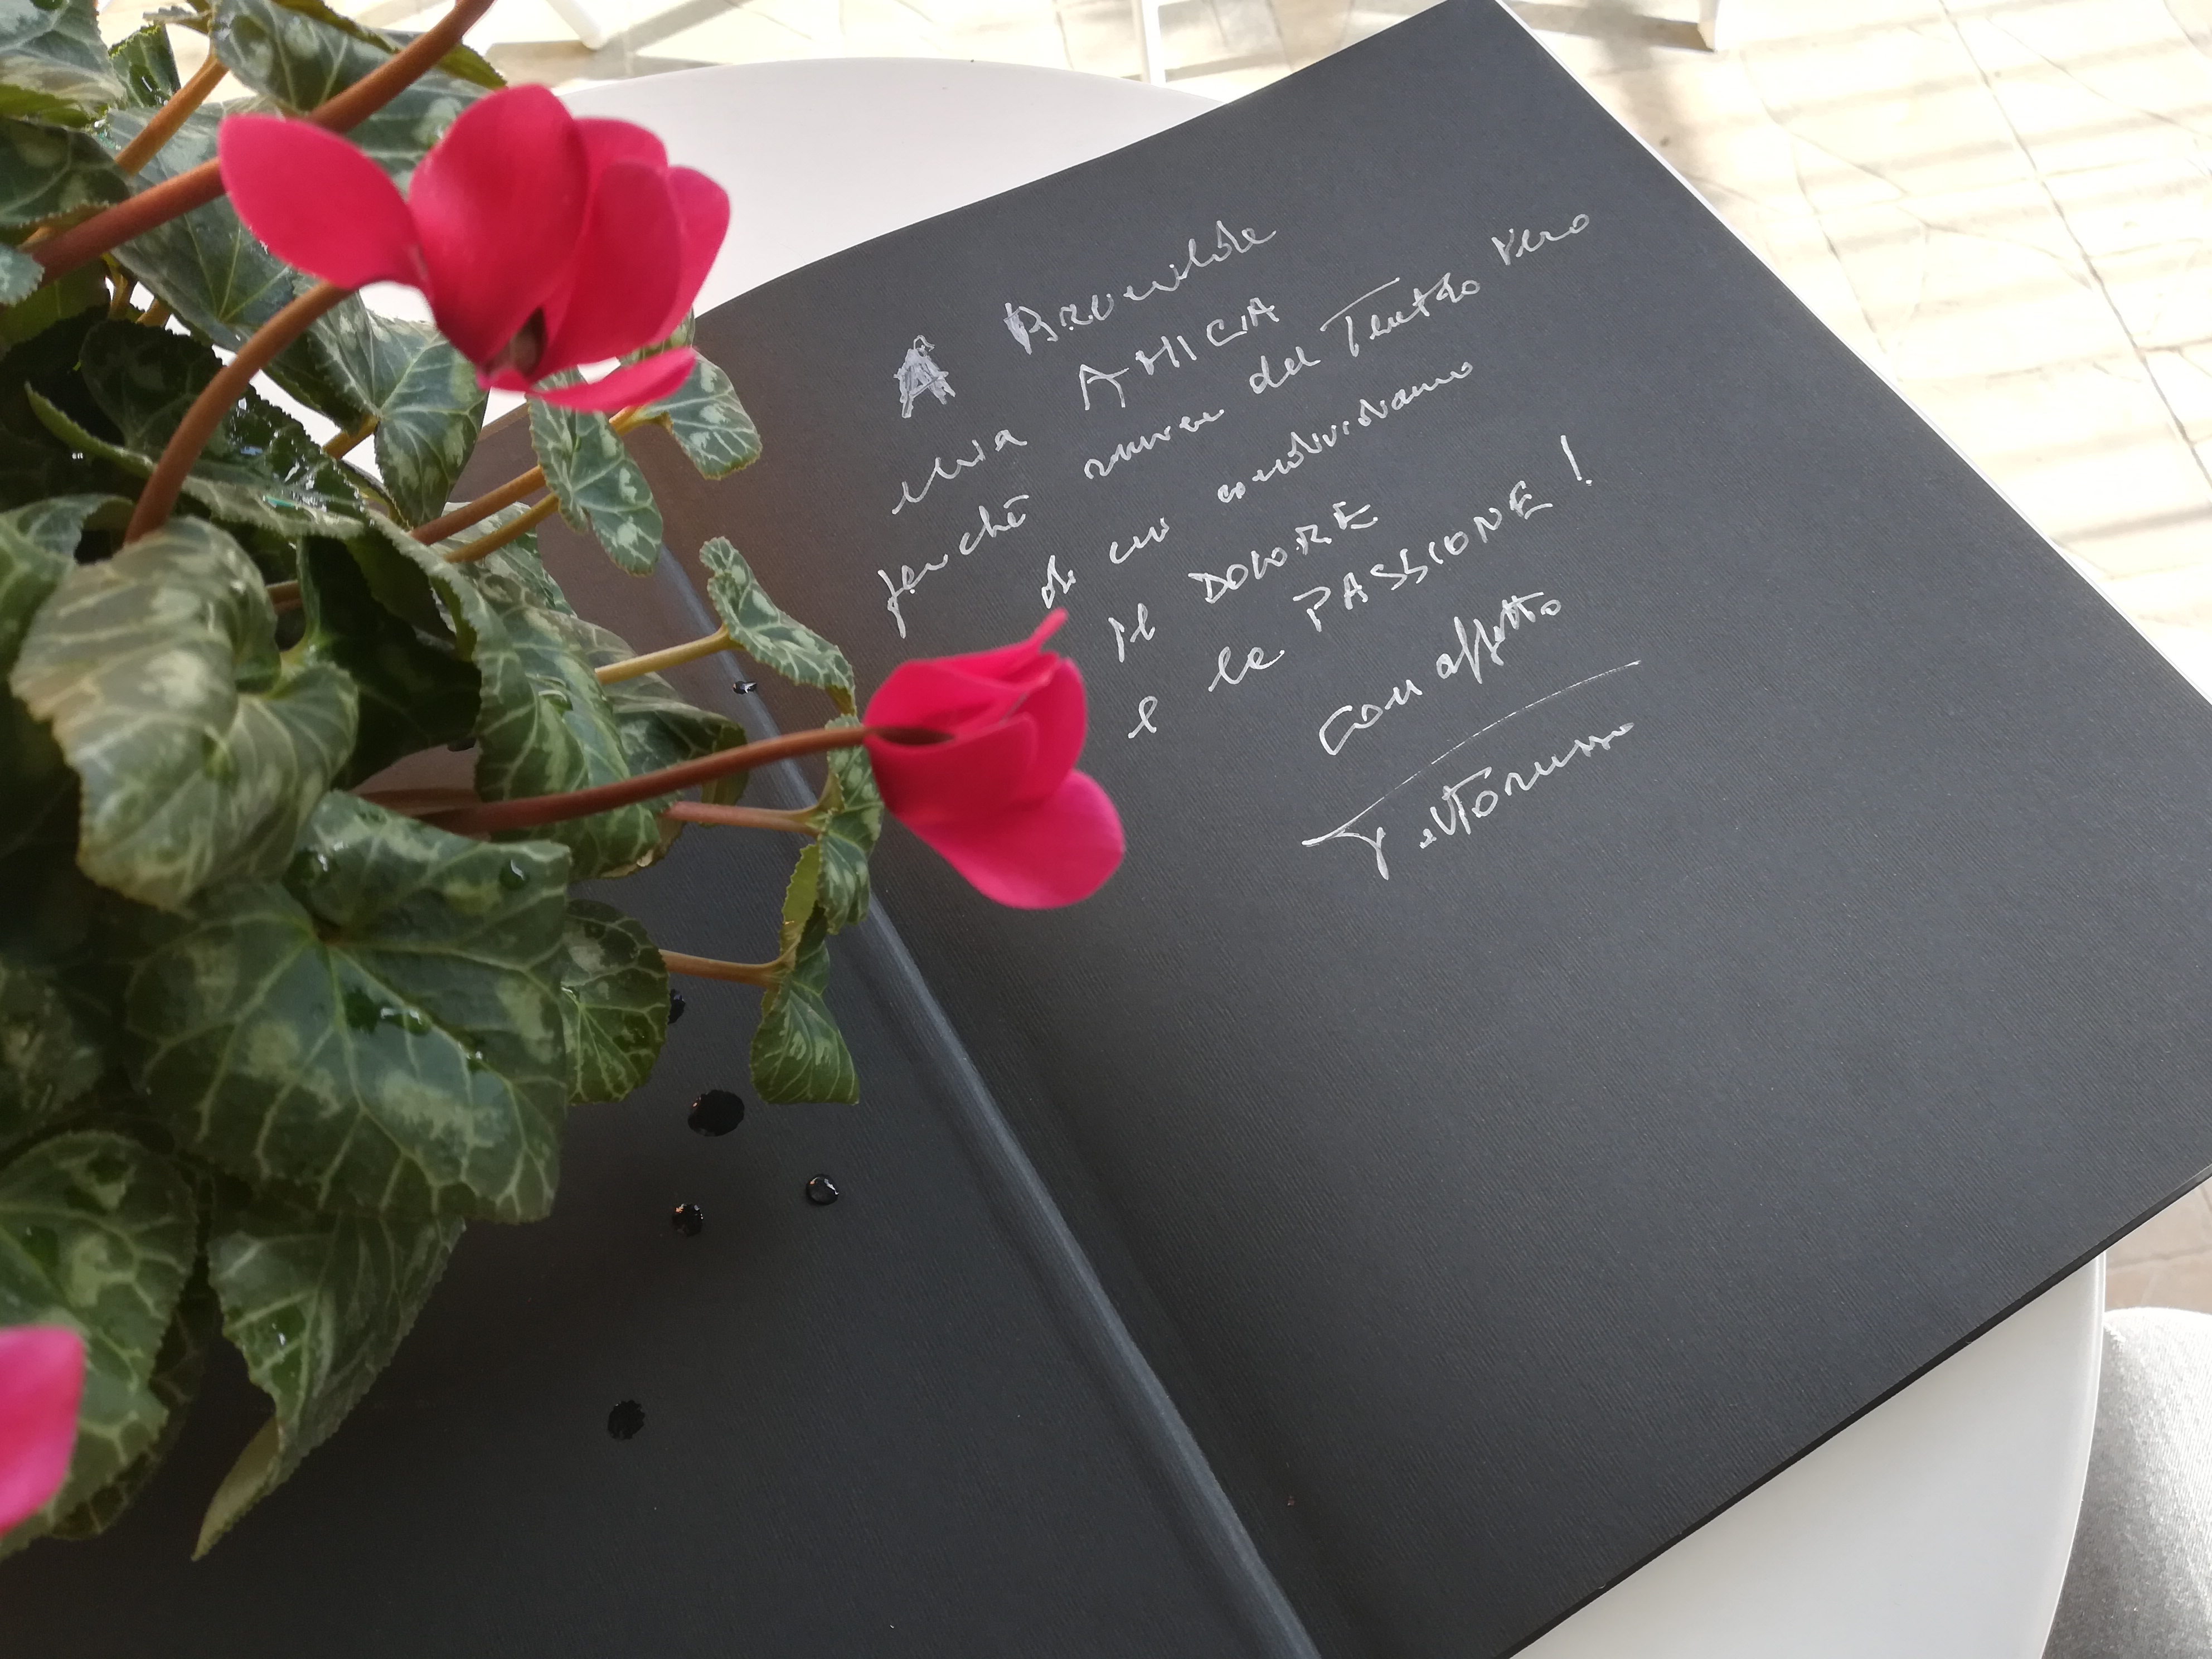 A Brunilde
mia AMICA
perché amica del Teatro Vero
di cui condividiamo
il DOLORE
e la PASSIONE!
con affetto